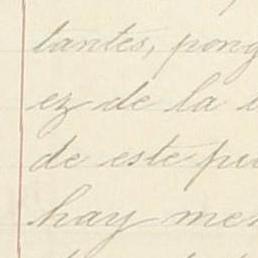 tantes, pong
ez de la
de este pu
hay men